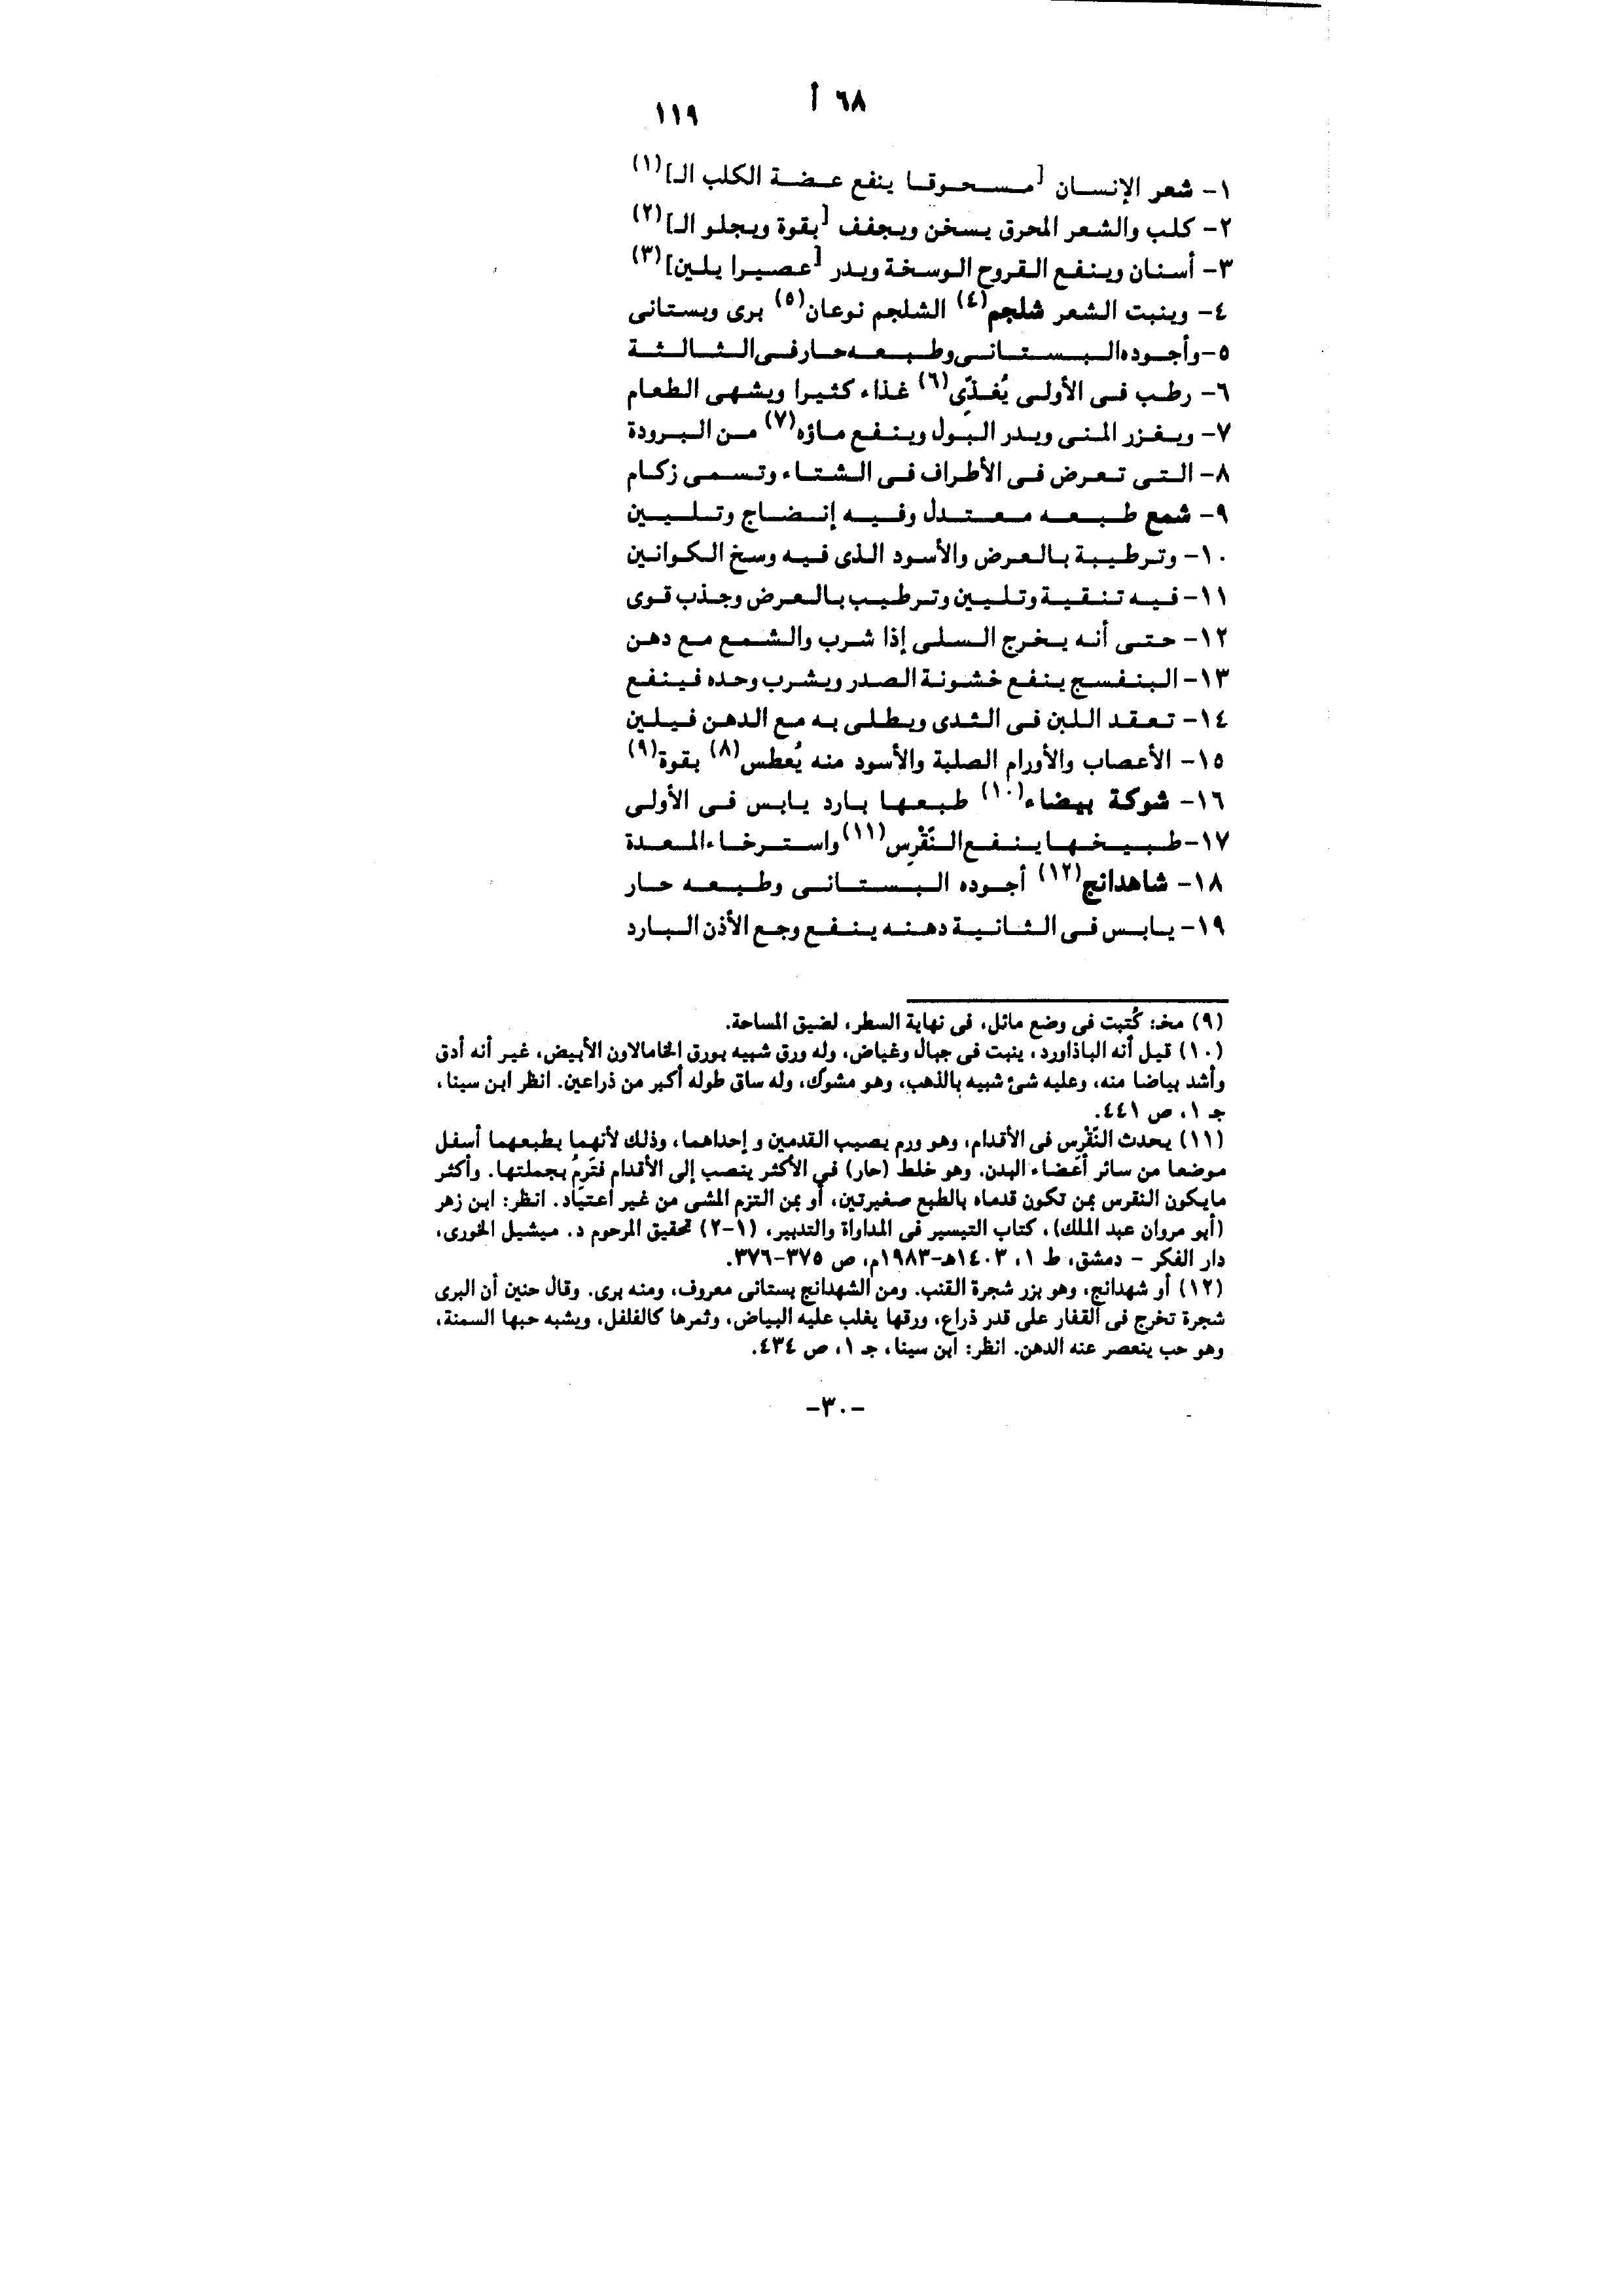 ٦٨ أ
١١٩
١- شعر الإنسان [مسحوقا ينفع عضة الكلب الـ](١)
٢- كلب والشعر المحرق يسخن ويجفف [بقوة ويجلو الـ](٢)
٣- أسنان وينفع القروح الوسخة ويدر [عصيرا يلين](٣)
٤- وينبت الشعر شلجم(٤) الشلجم نوعان(٥) برى وبستانى
٥- وأجوده البستانى وطبعه حار فى الثالثة
٦- رطب فى الأولى يُغذّى(٦) غذاء كثيرا ويشهى الطعام
٧- ويغزر المنى ويدر البول وينفع ماؤه(٧) من البرودة
٨- التى تعرض فى الأطراف فى الشتاء وتسمى زكام
٩- شمع طبعه معتدل وفيه إنضاج وتليين
١٠- وترطيبة بالعرض والأسود الذى فيه وسخ الكوانين
١١- فيه تنقية وتليين وترطيب بالعرض وجذب قوى
١٢- حتى أنه يخرج السلى إذا شرب والشمع مع دهن
١٣- البنفسج ينفع خشونة الصدر ويشرب وحده فينفع
١٤- تعقد اللبن فى الثدى ويطلى به مع الدهن فيلين
١٥- الأعصاب والأورام الصلبة والأسود منه يُعطس(٨) بقوة(٩)
١٦- شوكة بيضاء(١٠) طبعها بارد يابس فى الأولى
١٧- طبيخها ينفع النِّقْرِس(١١) واسترخاء المعدة
١٨- شاهدانج(١٢) أجوده البستانى وطبعه حار
١٩- يابس فى الثانية دهنه ينفع وجع الأذن البارد
(٩) مخـ: كُتبت فى وضع مائل، فى نهاية السطر، لضيق المساحة.
(١٠) قيل أنه الباذاورد، ينبت فى جبال وغياض، وله ورق شبيه بورق الخامالاون الأبيض، غير أنه أدق
وأشد بياضا منه، وعليه شئ شبيه بالذهب، وهو مشوك، وله ساق طوله أكبر من ذراعين. انظر ابن سينا،
جـ ١، ص ٤٤١.
(١١) يحدث النِّقْرِس فى الأقدام، وهو ورم يصيب القدمين و إحداهما، وذلك لأنهما بطبعهما أسفل
موضعا من سائر أعضاء البدن. وهو خلط (حار) فى الأكثر ينصب إلى الأقدام فتَرِمُ بجملتها. وأكثر
مايكون النقرس بمن تكون قدماه بالطبع صغيرتين، أو بمن التزم المشى من غير اعتياد. انظر: ابن زهر
(أبو مروان عبد الملك)، كتاب التيسير فى المداواة والتدبير، (١-٢) تحقيق المرحوم د. ميشيل الخورى،
دار الفكر - دمشق، ط ١، ١٤٠٣هـ-١٩٨٣م، ص ٣٧٥-٣٧٦.
(١٢) أو شهدانج، وهو بزر شجرة القنب. ومن الشهدانج بستانى معروف، ومنه برى. وقال حنين أن البرى
شجرة تخرج فى القفار على قدر ذراع، ورقها يغلب عليه البياض، وثمرها كالفلفل، ويشبه حبها السمنة،
وهو حب ينعصر عنه الدهن. انظر: ابن سينا، جـ ١، ص ٤٣٤.
-٣٠-